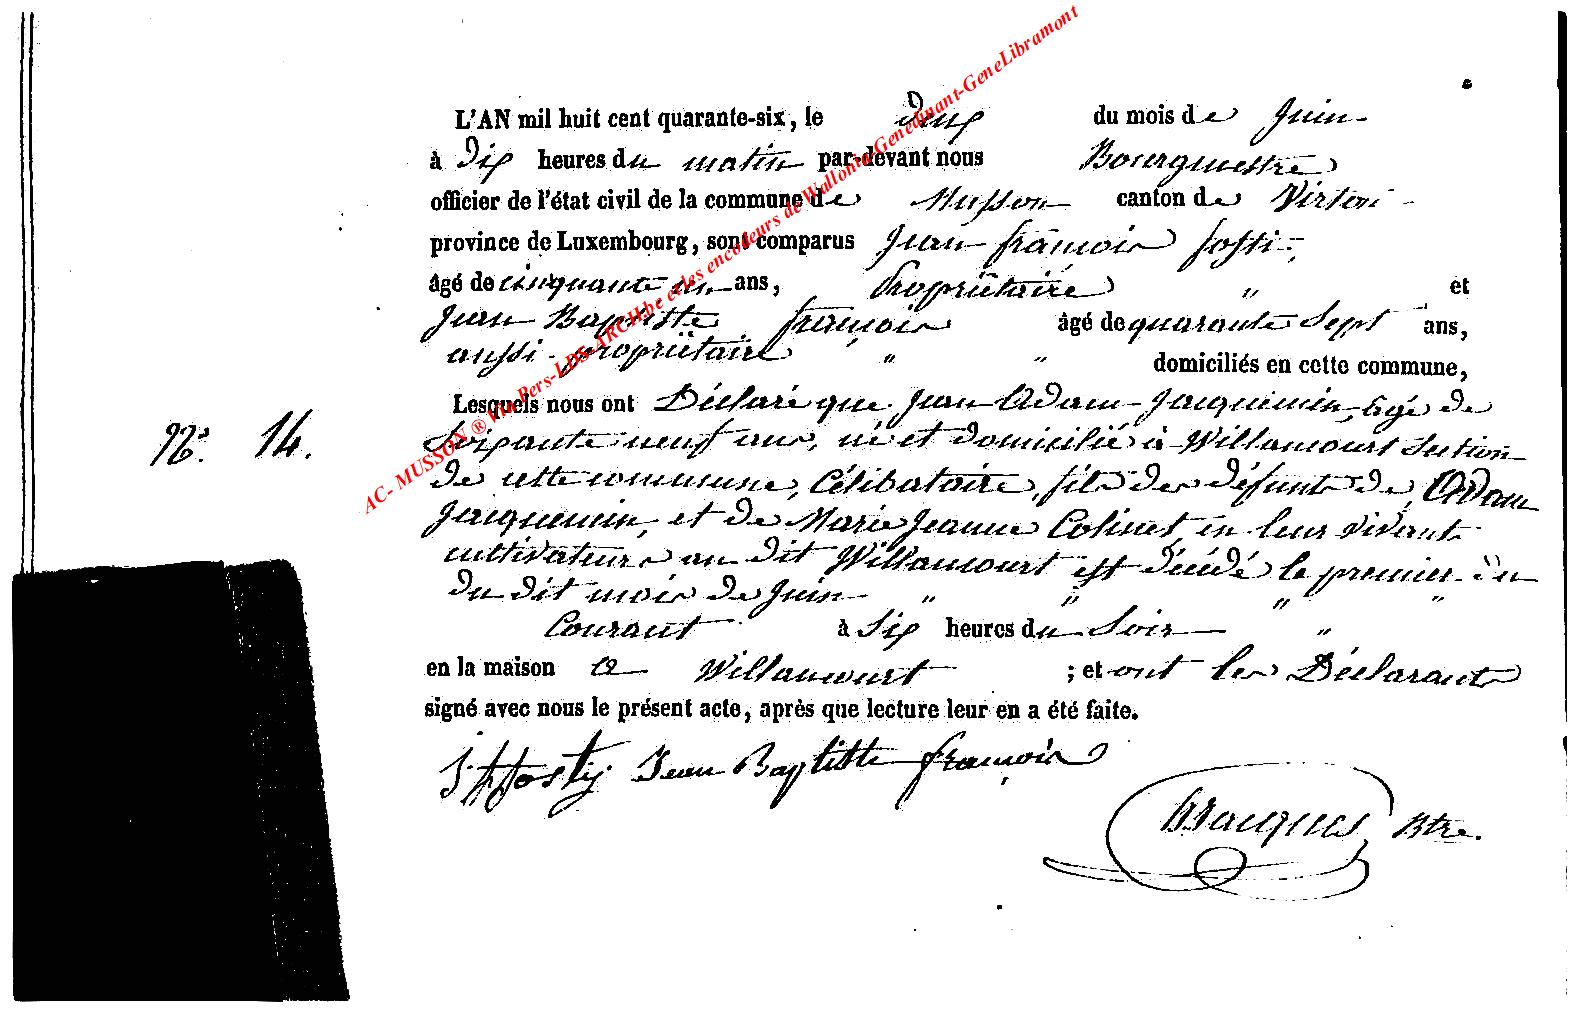 L'AN mil huit cent quarante-six, le deux du mois de Juin
à Dix heures du matin par-devant nous Bourgmestre
officier de l'état civil de la commune de Musson canton de Virton
province de Luxembourg, sont comparus Jean françois
âgé de cinquante un ans, Propriétaire " et
Jean Baptiste françois âgé de quarante Sept ans,
aussi propriétaire " " domiciliés en cette commune,
Lesquels nous ont Déclaré que Jean Adam Jacquemin, âgé de
N° 14.
Soixante neuf ans, né et domicilié à Willancourt Section
de cette commune, Célibataire, fils des défunts de Adam
Jacquemin, et de Marie Jeanne Colinet, en leur vivant
cultivateurs au dit Willancourt est décédé le premier du
du dit mois de Juin " " " "
Courant à Six heures du Soir "
en la maison a Willancourt ; et ont les Déclarants
signé avec nous le présent acte, après que lecture leur en a été faite.
Jean Baptiste françois
Btre.
AC- MUSSON ® Via Pers-LDS-ARCH.be et les encodeurs de Wallonia-Genedinant-GeneLibramont